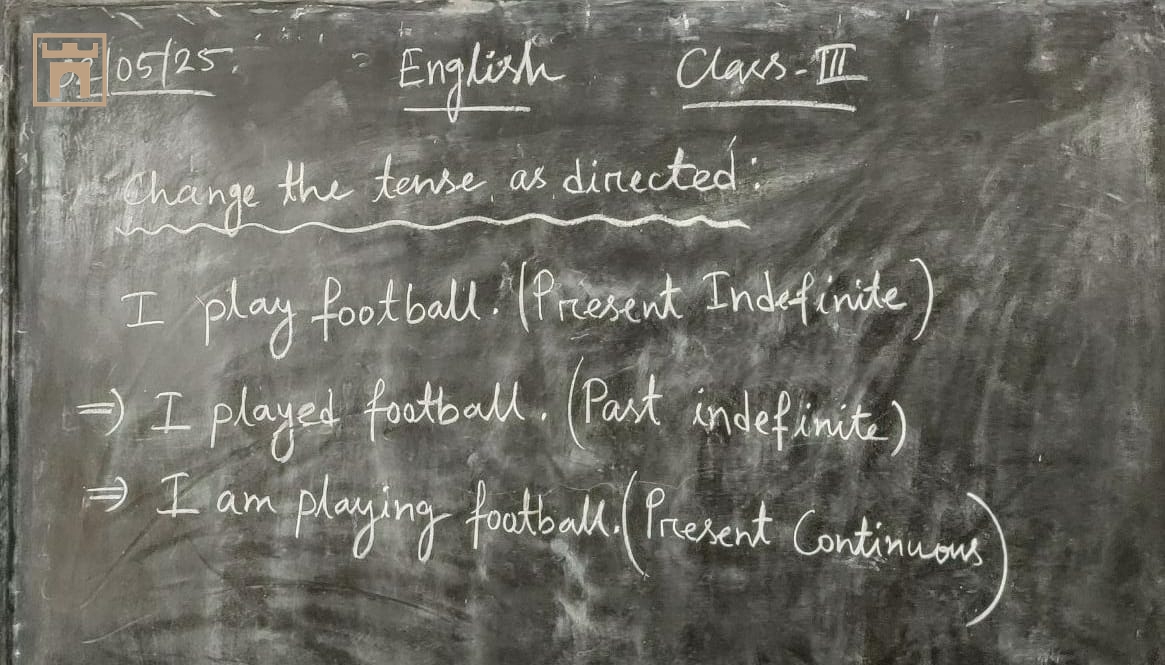 /05/25. English Class-III
Change the tense as directed:
I play football. (Present Indefinite)
⇒ I played football. (Past indefinite)
⇒ I am playing football. (Present Continuous)